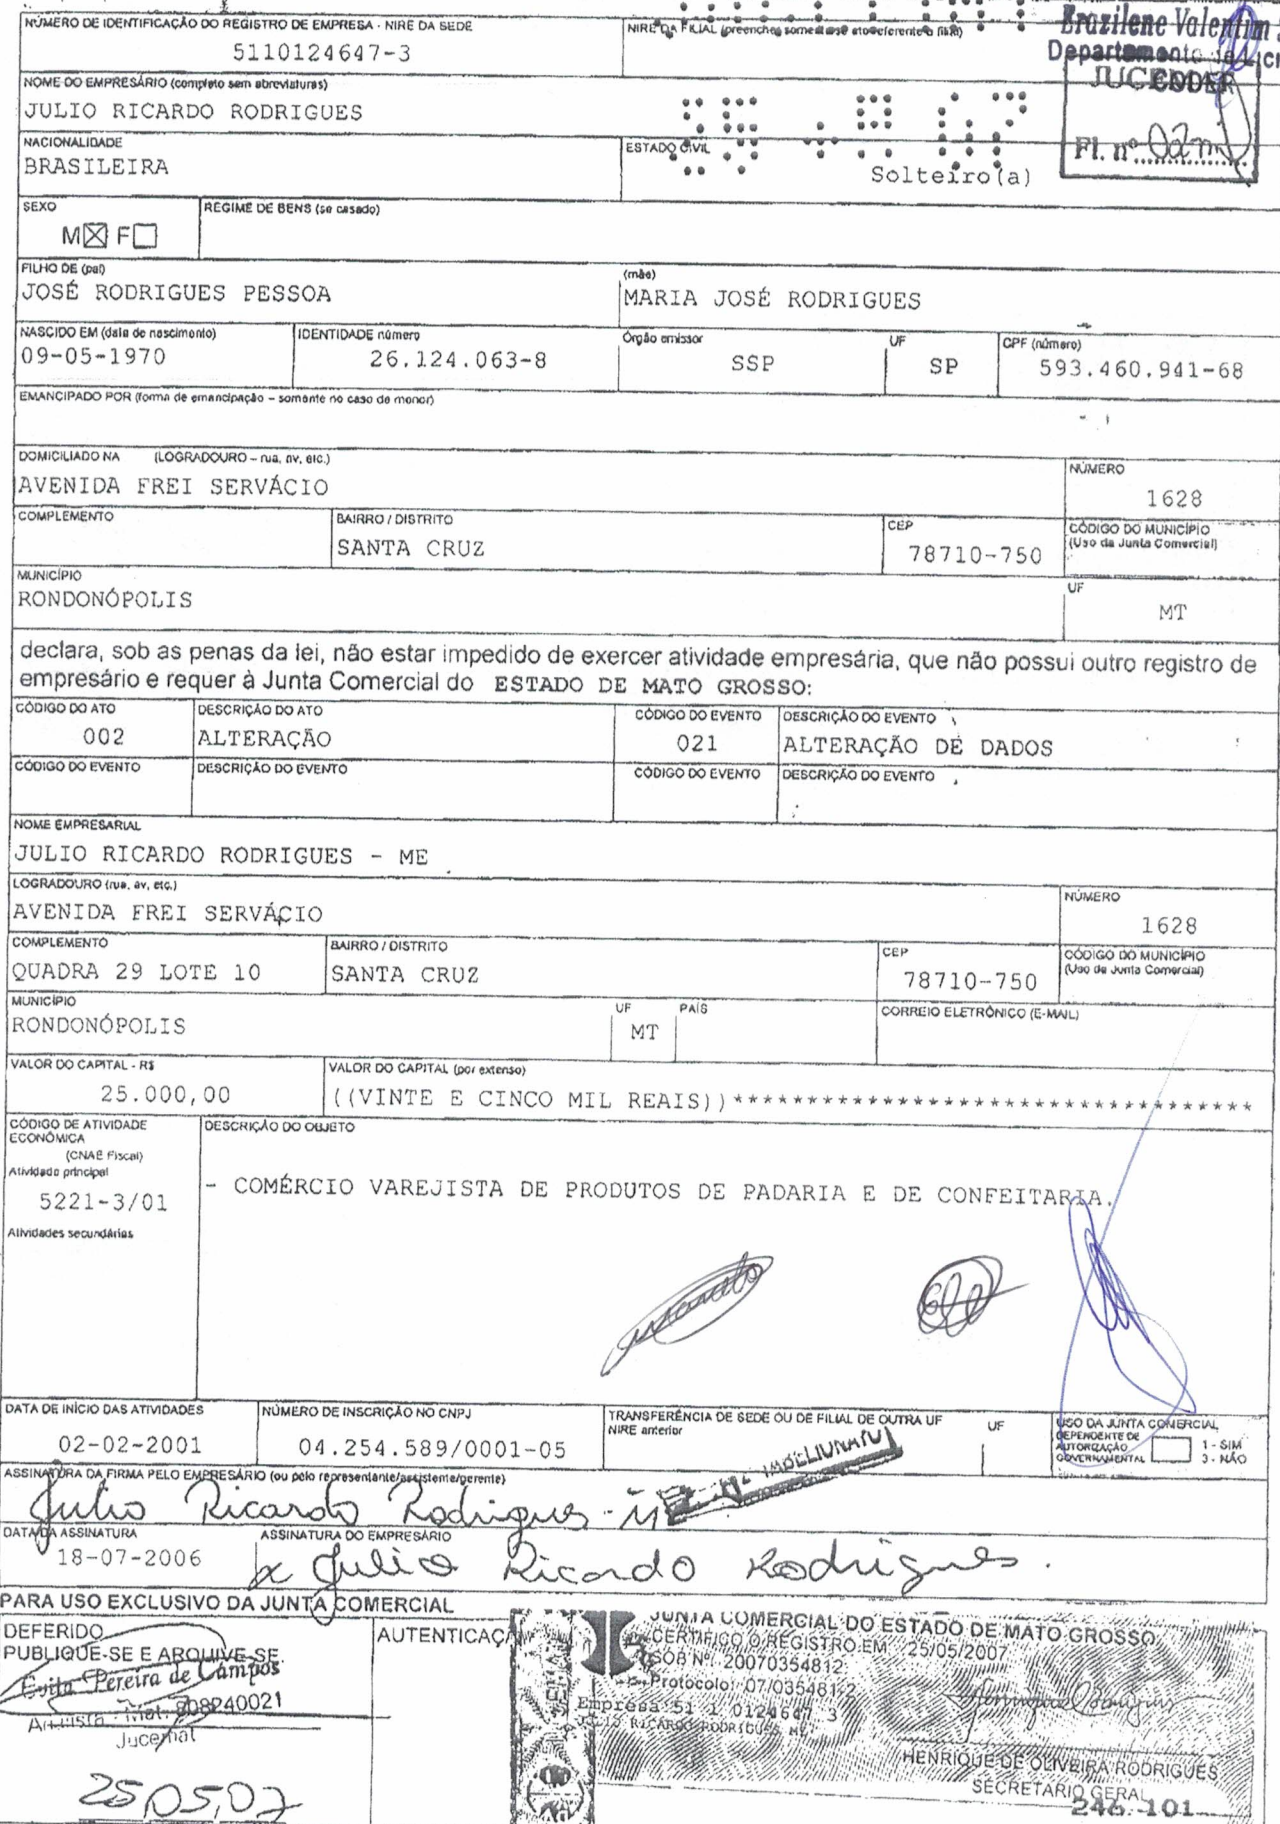 NÚMERO DE IDENTIFICAÇÃO DO REGISTRO DE EMPRESA - NIRE DA SEDE
5110124647-3
NIRE DA FILIAL (preencher somente se ato referente a filial)
Erazilene Valentim
Departamento de
CODER
Fl. nº
NOME DO EMPRESÁRIO (completo sem abreviaturas)
JULIO RICARDO RODRIGUES
NACIONALIDADE
BRASILEIRA
ESTADO CIVIL
Solteiro(a)
SEXO
M☒ F☐
REGIME DE BENS (se casado)
FILHO DE (pai)
JOSÉ RODRIGUES PESSOA
(mãe)
MARIA JOSÉ RODRIGUES
NASCIDO EM (data de nascimento)
09-05-1970
IDENTIDADE número
26.124.063-8
Órgão emissor
SSP
UF
SP
CPF (número)
593.460.941-68
EMANCIPADO POR (forma de emancipação – somente no caso de menor)
DOMICILIADO NA (LOGRADOURO – rua, av, etc.)
AVENIDA FREI SERVÁCIO
NÚMERO
1628
COMPLEMENTO
BAIRRO / DISTRITO
SANTA CRUZ
CEP
78710-750
CÓDIGO DO MUNICÍPIO
(Uso da Junta Comercial)
MUNICÍPIO
RONDONÓPOLIS
UF
MT
declara, sob as penas da lei, não estar impedido de exercer atividade empresária, que não possui outro registro de
empresário e requer à Junta Comercial do ESTADO DE MATO GROSSO:
CÓDIGO DO ATO
002
DESCRIÇÃO DO ATO
ALTERAÇÃO
CÓDIGO DO EVENTO
021
DESCRIÇÃO DO EVENTO
ALTERAÇÃO DE DADOS
CÓDIGO DO EVENTO
DESCRIÇÃO DO EVENTO
CÓDIGO DO EVENTO
DESCRIÇÃO DO EVENTO
NOME EMPRESARIAL
JULIO RICARDO RODRIGUES - ME
LOGRADOURO (rua, av, etc.)
AVENIDA FREI SERVÁCIO
NÚMERO
1628
COMPLEMENTO
QUADRA 29 LOTE 10
BAIRRO / DISTRITO
SANTA CRUZ
CEP
78710-750
CÓDIGO DO MUNICÍPIO
(Uso da Junta Comercial)
MUNICÍPIO
RONDONÓPOLIS
UF
MT
PAÍS
CORREIO ELETRÔNICO (E-MAIL)
VALOR DO CAPITAL - R$
25.000,00
VALOR DO CAPITAL (por extenso)
((VINTE E CINCO MIL REAIS))***********************************
CÓDIGO DE ATIVIDADE
ECONÔMICA
(CNAE Fiscal)
Atividade principal
5221-3/01
Atividades secundárias
DESCRIÇÃO DO OBJETO
- COMÉRCIO VAREJISTA DE PRODUTOS DE PADARIA E DE CONFEITARIA.
DATA DE INÍCIO DAS ATIVIDADES
02-02-2001
NÚMERO DE INSCRIÇÃO NO CNPJ
04.254.589/0001-05
TRANSFERÊNCIA DE SEDE OU DE FILIAL DE OUTRA UF
NIRE anterior
UF
USO DA JUNTA COMERCIAL
DEPENDENTE DE
AUTORIZAÇÃO
GOVERNAMENTAL
1 - SIM
3 - NÃO
ASSINATURA DA FIRMA PELO EMPRESÁRIO (ou pelo representante/assistente/gerente)
Julio Ricardo Rodrigues - M
DATA DA ASSINATURA
18-07-2006
ASSINATURA DO EMPRESÁRIO
x Julio Ricardo Rodrigues.
PARA USO EXCLUSIVO DA JUNTA COMERCIAL
DEFERIDO
PUBLIQUE-SE E ARQUIVE-SE.
Evita Pereira de Campos
Analista - Mat. 808240021
Jucemat
25 05,07
AUTENTICAÇÃ
JUNTA COMERCIAL DO ESTADO DE MATO GROSSO
CERTIFICO O REGISTRO EM 25/05/2007
SOB Nº 20070354812
Protocolo: 07/035481-2
Empresa 51 1 0124647 3
JULIO RICARDO RODRIGUES ME
HENRIQUE DE OLIVEIRA RODRIGUES
SECRETARIO GERAL
246.101